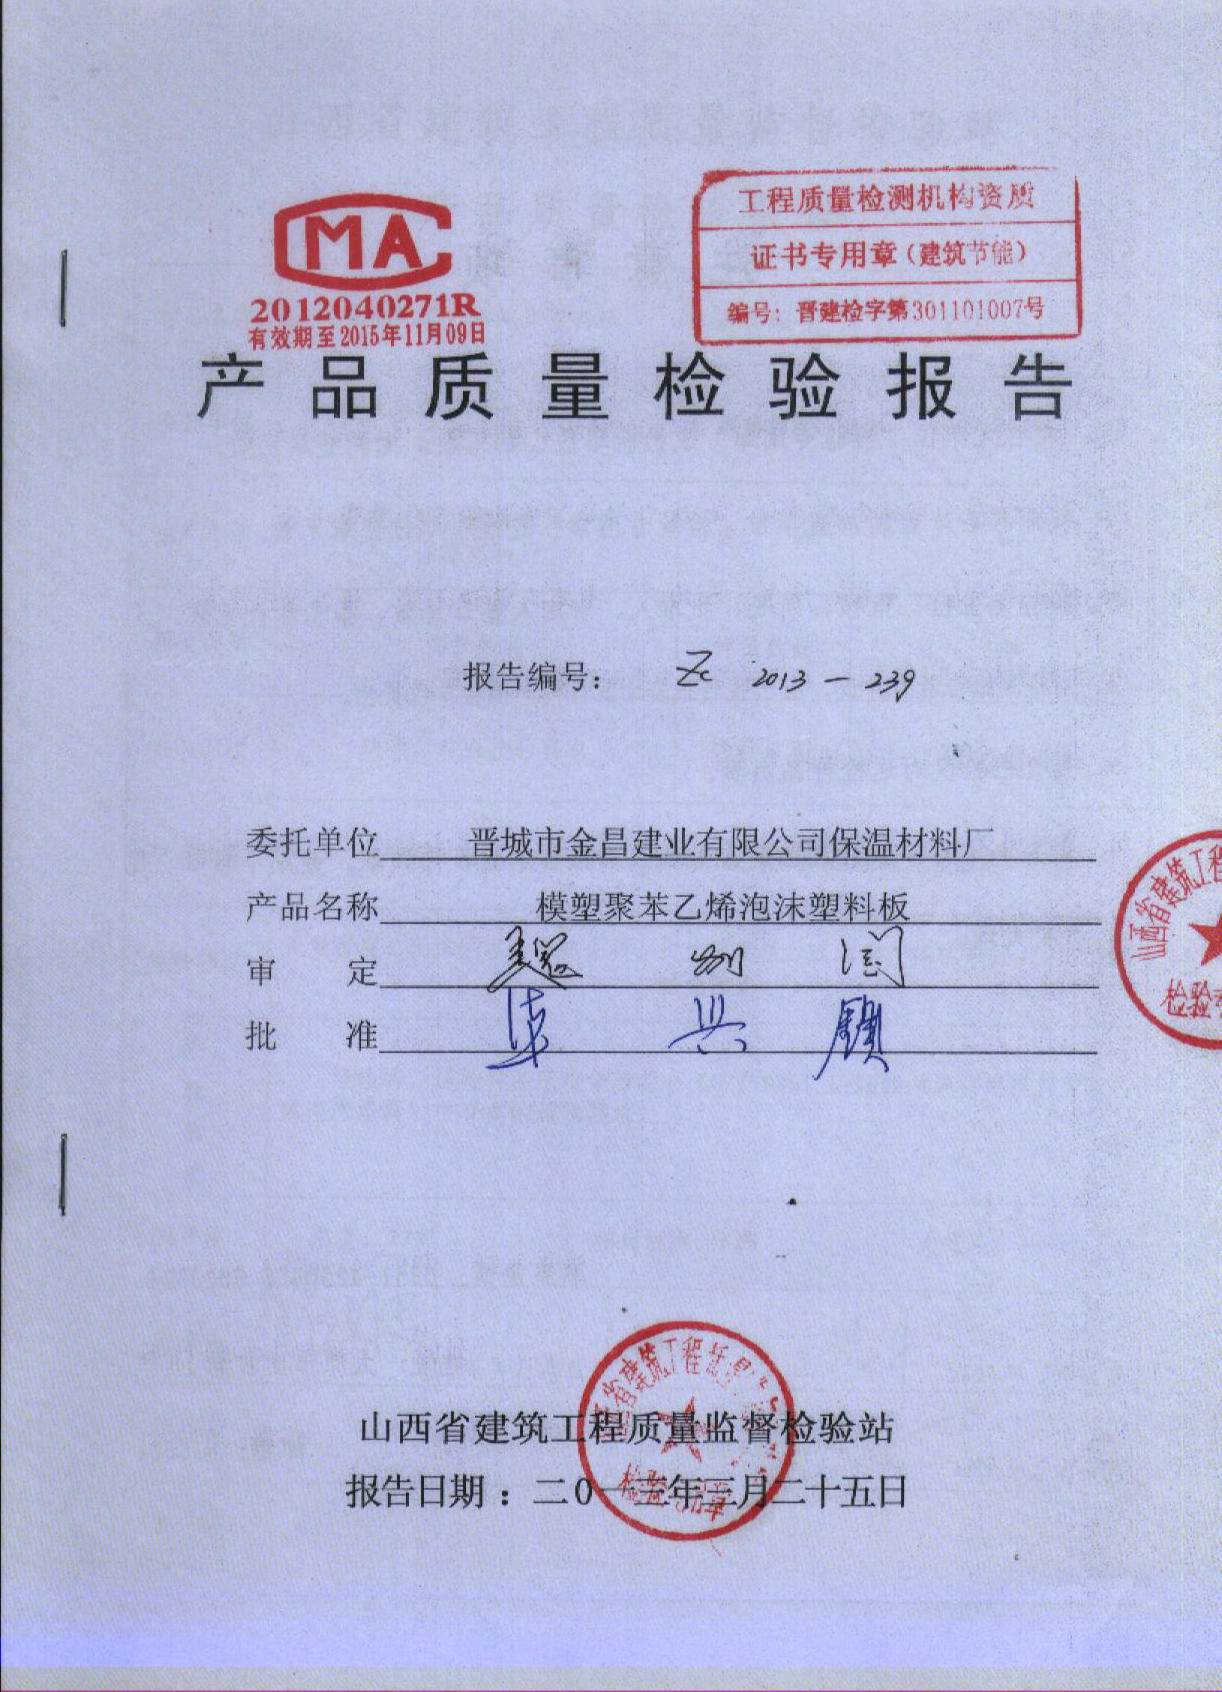 MA
2012040271R
有效期至2015年11月09日
工程质量检测机构资质
证书专用章(建筑节能)
编号: 晋建检字第301101007号
产品质量检验报告
报告编号: Zc 2013-239
委托单位 晋城市金昌建业有限公司保温材料厂
产品名称 模塑聚苯乙烯泡沫塑料板
审 定
批 准
山西省建筑工程
检验
山西省建筑工程质量监督检验站
报告日期:二0一三年三月二十五日